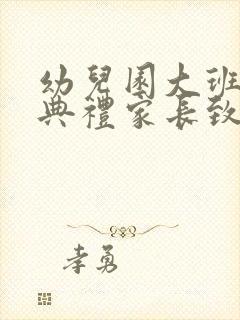 幼兒園大班
典禮家長致
李勇